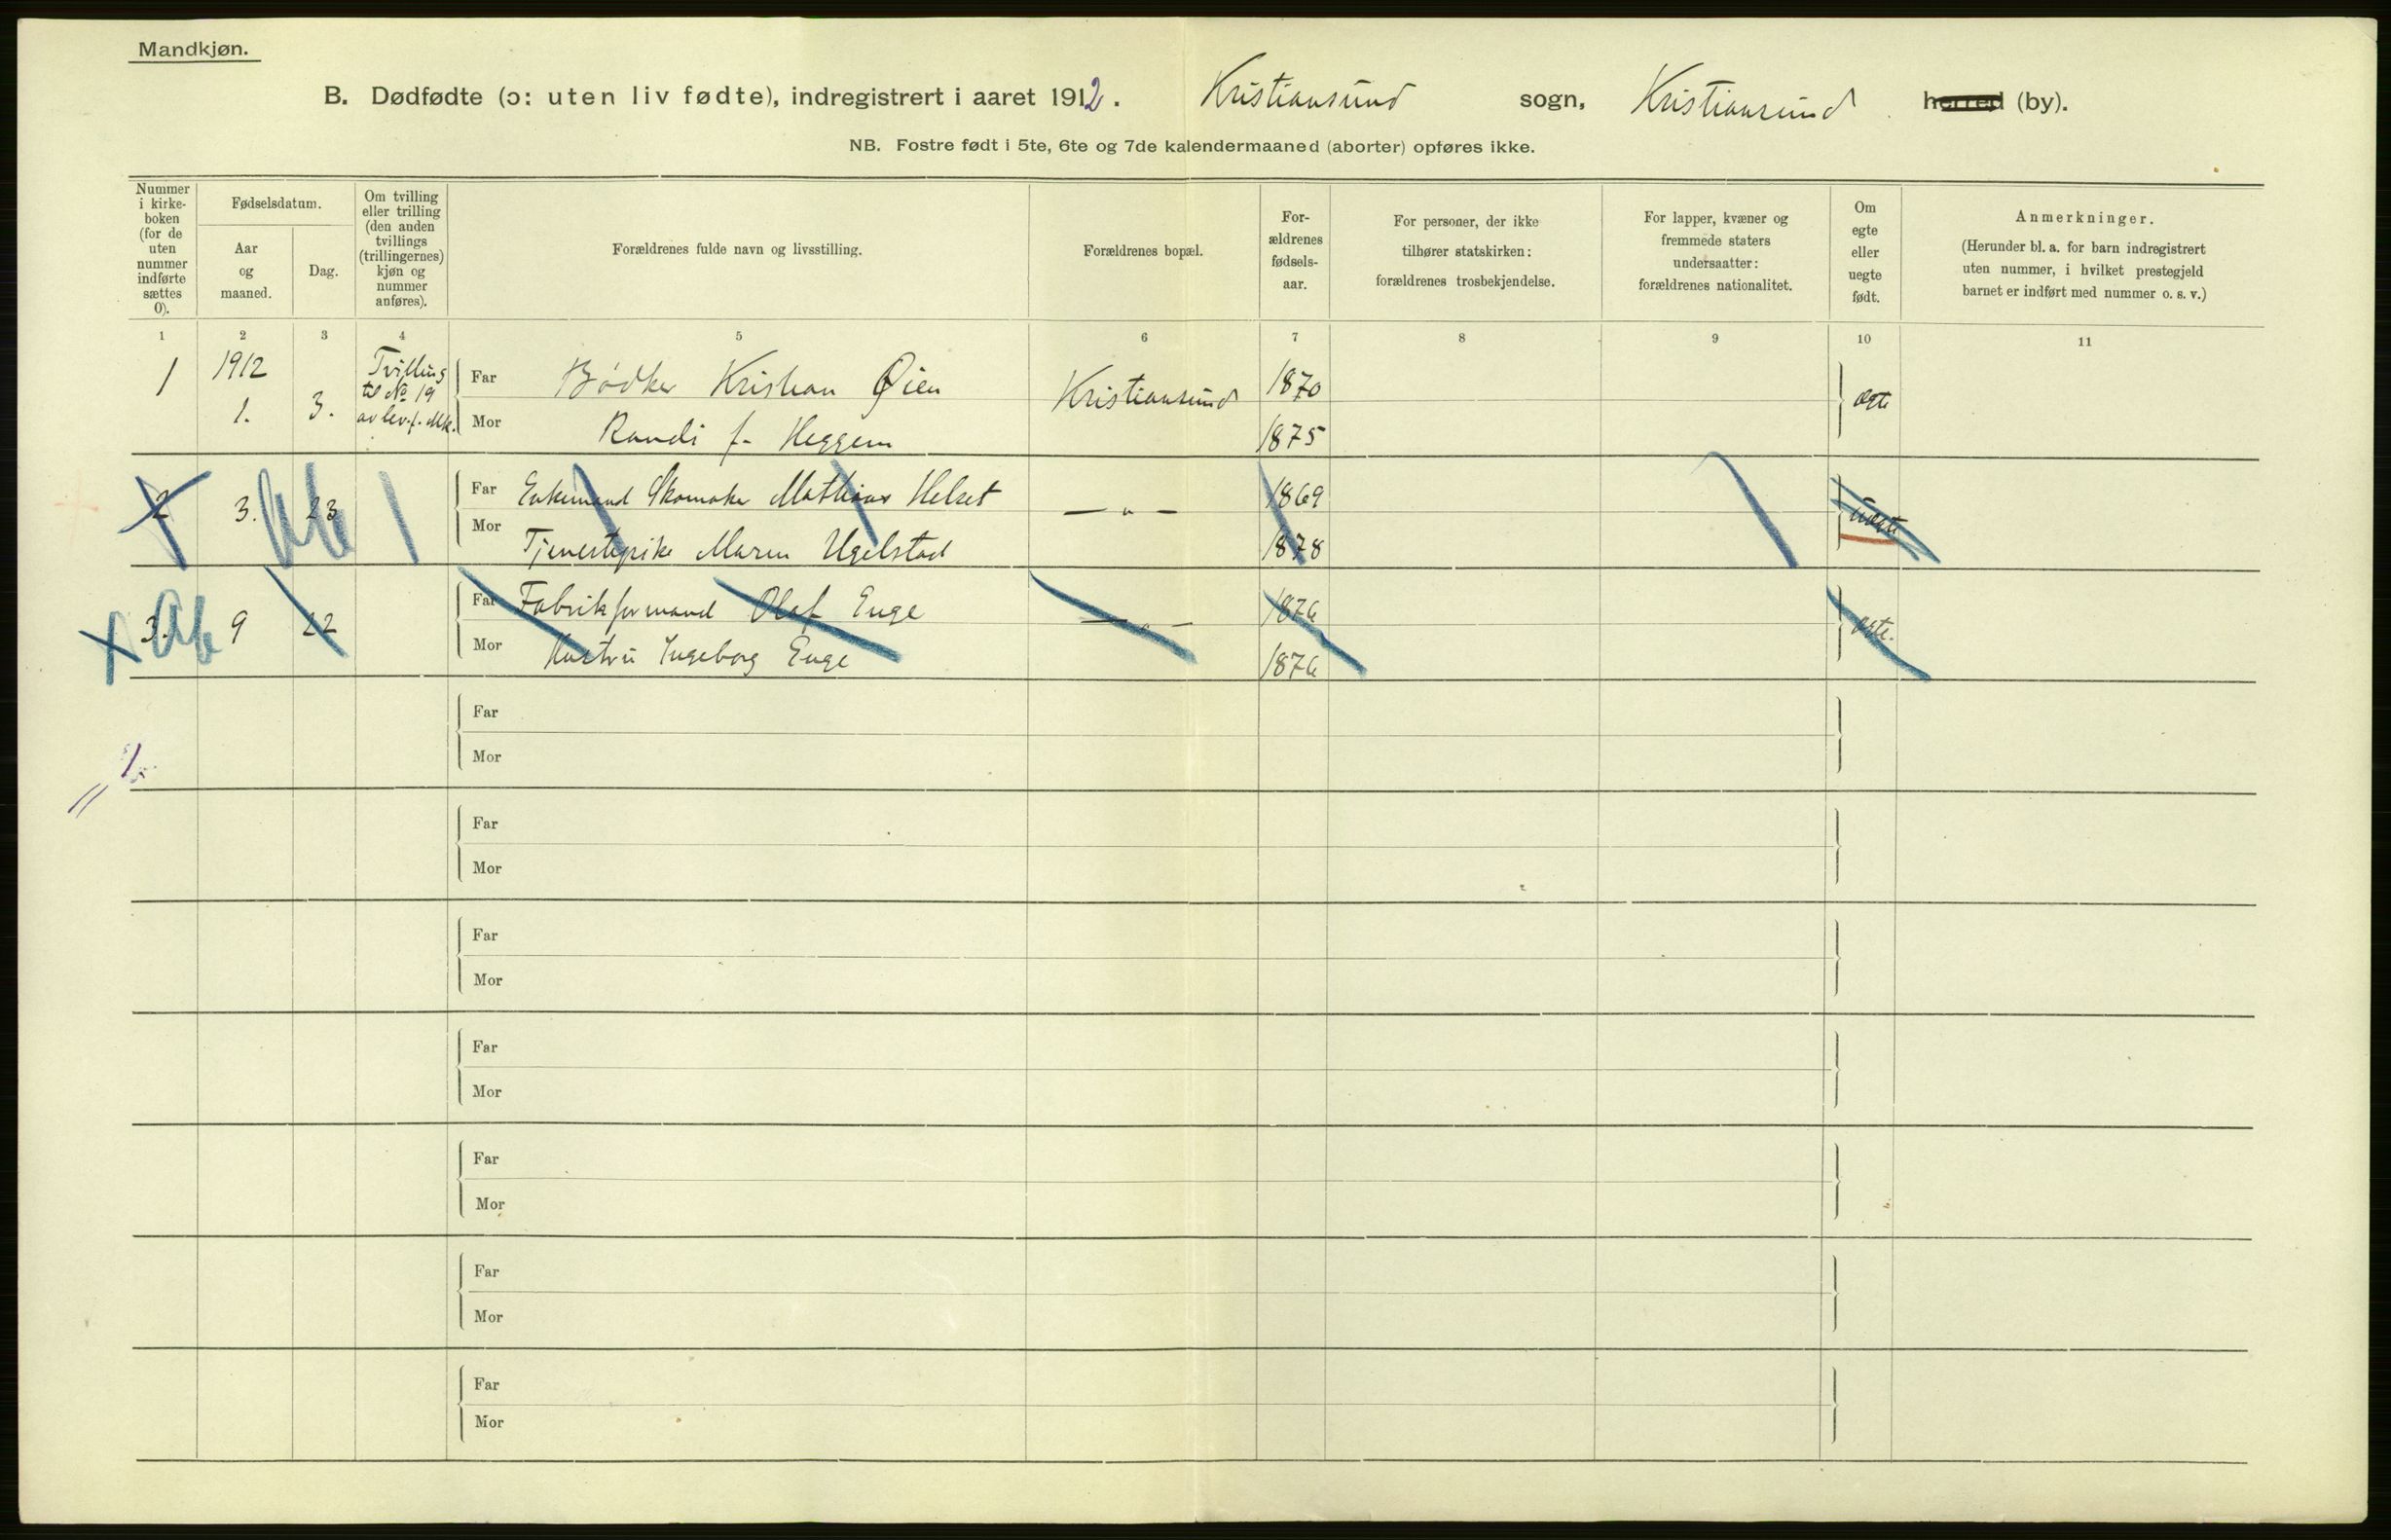 Mandkjøn.
B. Dødfødte (ɔ: uten liv fødte), indregistrert i aaret 1912. Kristiansund sogn, Kristiansund herred (by).
NB. Fostre født i 5te, 6te og 7de kalendermaaned (aborter) opføres ikke.
Nummer i kirke-boken (for de uten nummer indførte sættes 0).
Fødselsdatum.
Aar og maaned.
Dag.
Om tvilling eller trilling (den anden tvillings (trillingernes) kjøn og nummer anføres).
Forældrenes fulde navn og livsstilling.
Forældrenes bopæl.
For-ældrenes fødsels-aar.
For personer, der ikke tilhører statskirken: forældrenes trosbekjendelse.
For lapper, kvæner og fremmede staters undersaatter: forældrenes nationalitet.
Om egte eller uegte født.
Anmerkninger.
(Herunder bl. a. for barn indregistrert uten nummer, i hvilket prestegjeld barnet er indført med nummer o. s. v.)
1 2 3 4 5 6 7 8 9 10 11
1 1912 1. 3. Tvilling til No 19 av lev. f. Mk.
Far Bödker Kristian Øien Kristiansund 1870 ægte
Mor Randi f. Heggem 1875
2 3. 23
Far Enkemand Skomaker Mathias Helset — „ — 1869 uægte
Mor Tjenestepike Maren Ugelstad 1878
3. 9 22
Far Fabrikformand Olaf Enge — „ — 1876 ægte.
Mor Hustru Ingeborg Enge 1876
Far
Mor
Far
Mor
Far
Mor
Far
Mor
Far
Mor
Far
Mor
Far
Mor